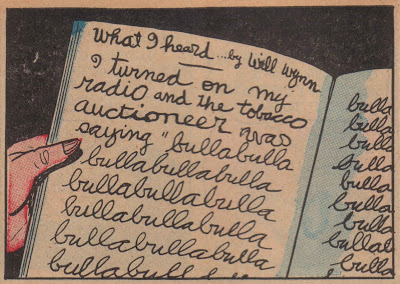 What I heard...by Will Wynn
I turned on my
radio and the tobacco
auctioneer was
saying "bullabulla
bullabullabulla
bullabullabulla
bullabullabulla
bullabullabulla
bullabull
bulla
bulla
bulla
bulla
bulla
bulla
bulla
bullal
bulla